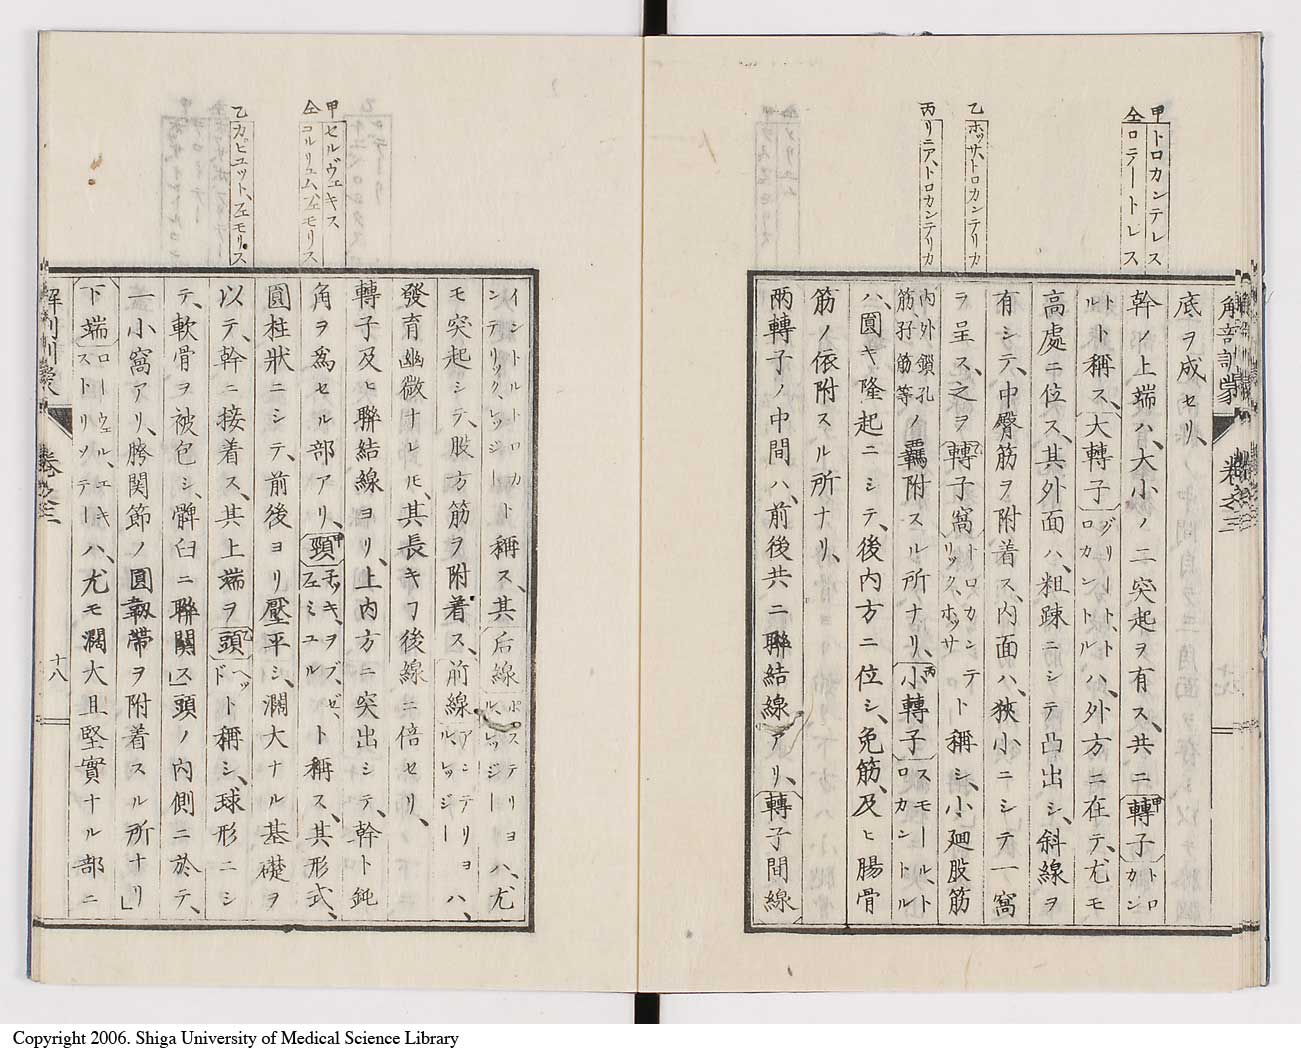 甲 トロカンテレス
仝 ロテートレス
乙 ホッサ、トロカンテリカ
丙 リニア、トロカンテリカ
解剖訓蒙 卷之三
底ヲ成セリ、
幹ノ上端ハ、大小ノ二突起ヲ有ス、共ニ轉子甲トロカン
トルト稱ス、大轉子グリート、トロカントルハ、外方ニ在テ、尤モ
高處ニ位ス、其外面ハ、粗疎ニシテ凸出シ、斜線ヲ
有シテ、中臀筋ヲ附着ス、内面ハ、狹小ニシテ一窩
ヲ呈ス、之ヲ轉子窩乙トロカンテリック、ホッサト稱シ、小廻股筋
内外鎖孔筋、孖筋等ノ覊附スル所ナリ、小轉子丙スモール、トロカントル
ハ、圓キ隆起ニシテ、後内方ニ位シ、免筋、及ヒ腸骨
筋ノ依附スル所ナリ、
兩轉子ノ中間ハ、前後共ニ聯結線アリ、轉子間線
甲 セルヴェキス
仝 コルリュム、フェモリス
乙 カピュット、フェモリス
イントルトロカンテリック、リッジート稱ス、其后線ポステリヨル、リッジーハ、尤
モ突起シテ、股方筋ヲ附着ス、前線アンテリヨル、リッジーハ、
發育幽微ナレ𪜈、其長キヿ後線ニ倍セリ、
轉子及ヒ聯結線ヨリ、上内方ニ突出シテ、幹ト鈍
角ヲ爲セル部アリ、頸甲子ッキ、ヲブ、ゼ、フェミュルト稱ス、其形式、
圓柱狀ニシテ、前後ヨリ壓平シ、濶大ナル基礎ヲ
以テ、幹ニ接着ス、其上端ヲ頭乙ヘッドト稱シ、球形ニシ
テ、軟骨ヲ被包シ、髀臼ニ聯關ス」頭ノ内側ニ於テ、
一小窩アリ、胯関節ノ圓靱帶ヲ附着スル所ナリ」
下端ローウェル、エキストリソテーハ、尤モ濶大且堅實ナル部ニ
解剖訓蒙 卷之三 十八
Copyright 2006. Shiga University of Medical Science Library